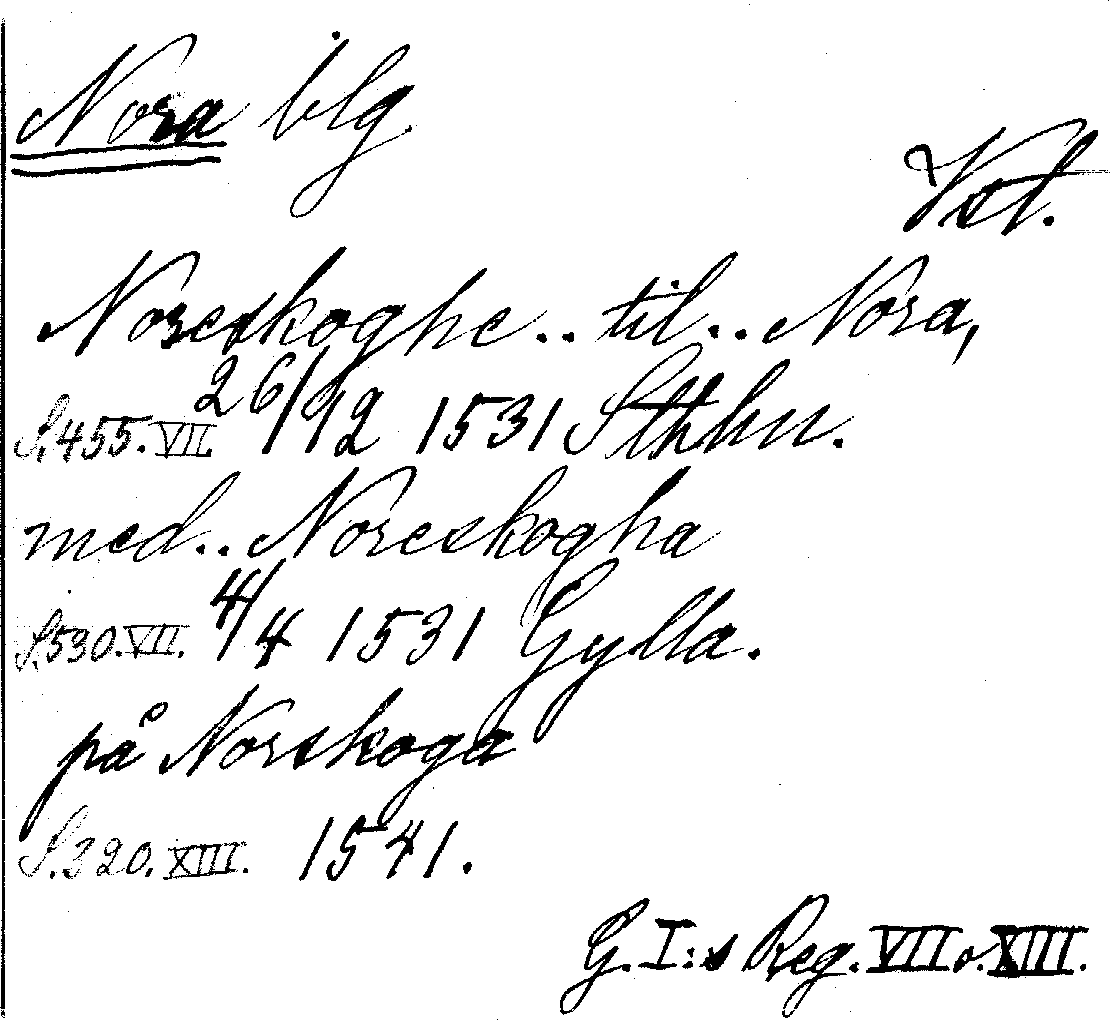 Nora blg
Vst.
Noreskoghe .. til .. Nora,
S. 455. VII. 26/12 1531 Sthlm.
med .. Noreskogha
S. 530. VII. 4/4 1531 Gylla.
på Norskoga
S. 320. XIII. 1541.
G. I:s Reg. VII o. XIII.